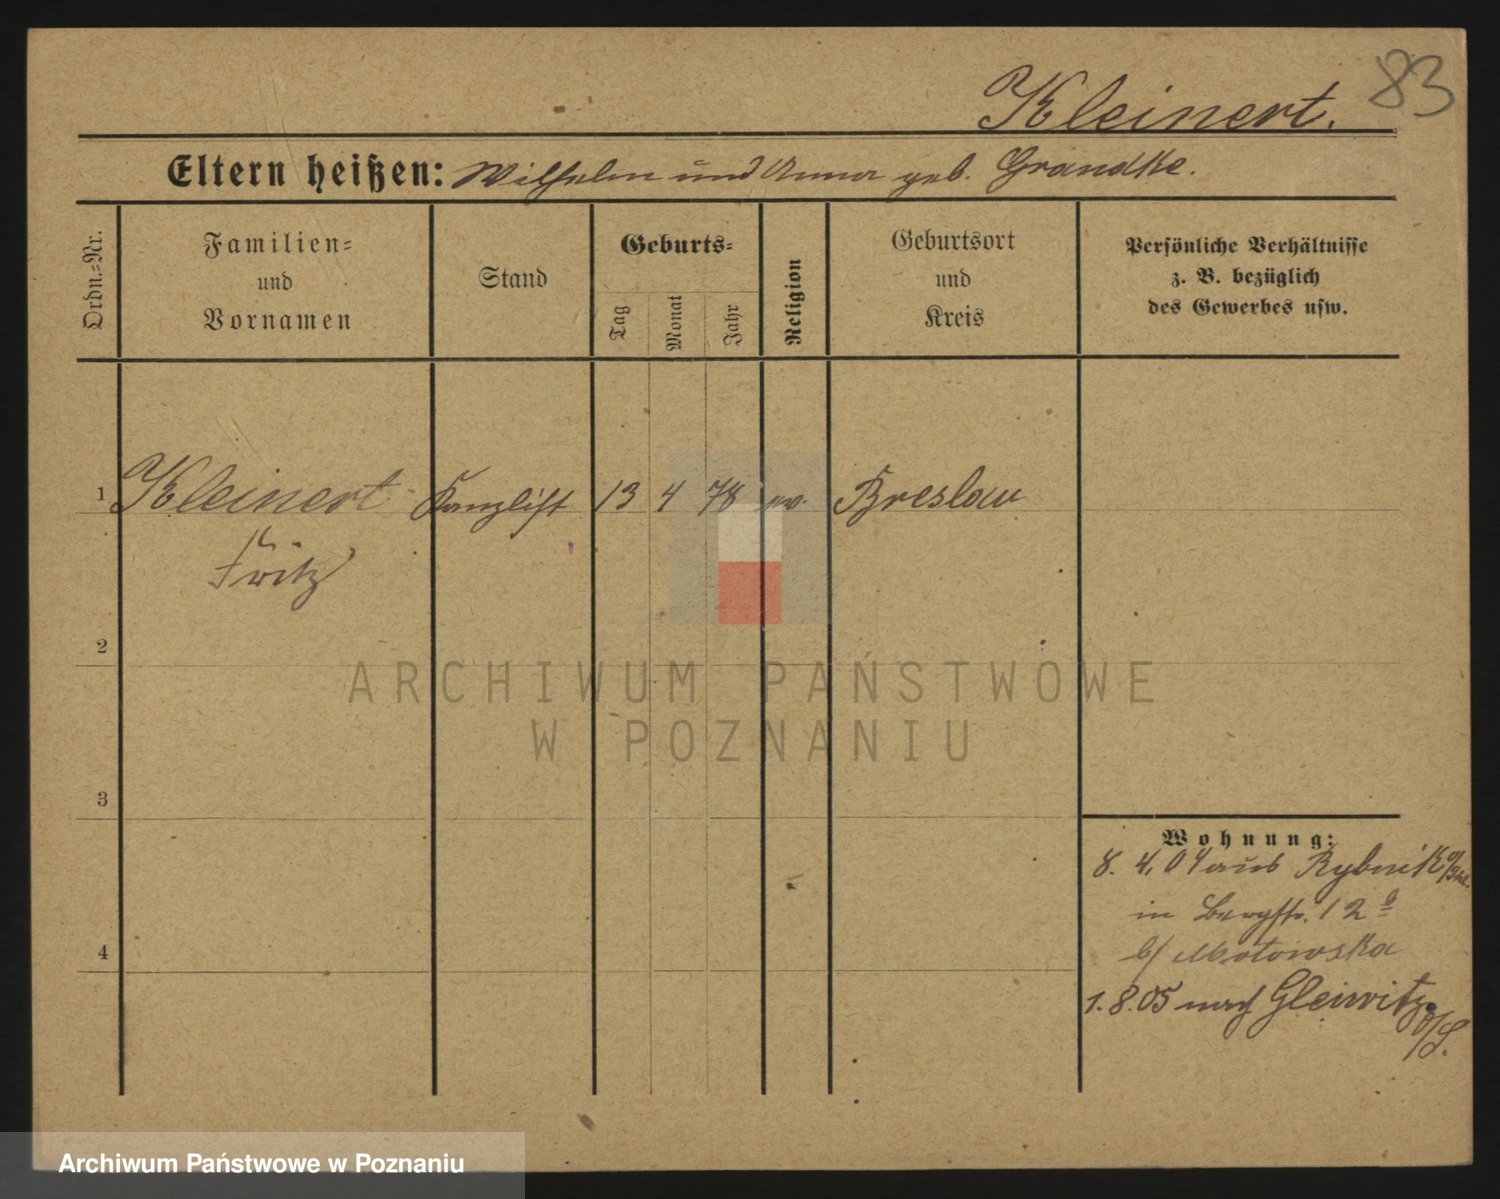 83
Kleinert.
Eltern heißen: Wilhelm und Anna geb. Grandke.
Ordn.=Nr.
Familien=
und
Vornamen
Stand
Geburts=
Tag
Monat
Jahr
Religion
Geburtsort
und
Kreis
Persönliche Verhältnisse
z. B. bezüglich
des Gewerbes usw.
1 Kleinert Kanzlist 13 4 78 ev. Breslau
Fritz
2
3
4
Wohnung:
8. 4. 04 aus Rybnik
in Bergstr. 12b
b/ Motowska
1. 8. 05 nach Gleiwitz
O/S.
ARCHIWUM PAŃSTWOWE
W POZNANIU
Archiwum Państwowe w Poznaniu